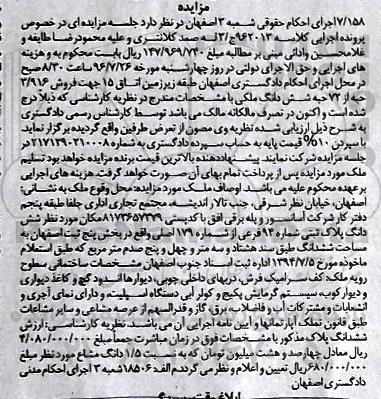 مزایده
۷/۱۵۸ اجرای احکام حقوقی شعبه ۳ اصفهان در نظر دارد جلسه مزایده ای در خصوص
پرونده اجرایی کلاسه ۹۶۲۰۱۳ج/۳ له صمد کلانتری و علیه محمودرضا طایفه و
غلامحسین وادانی مبنی بر مطالبه مبلغ ۱۴۷/۹۶۹/۷۴۰ ریال بابت محکوم به و هزینه
های اجرایی و حق الاجرای دولتی در روز چهارشنبه مورخه ۹۶/۷/۲۶ ساعت ۸/۳۰ صبح
در محل اجرای احکام دادگستری اصفهان طبقه زیرزمین اتاق ۱۵ جهت فروش ۳/۹۱۶
حبه از ۷۲ حبه شش دانگ ملکی با مشخصات مندرج در نظریه کارشناسی که ذیلا درج
شده است و اکنون در تصرف مالکانه مالک می باشد توسط کارشناس رسمی دادگستری
به شرح ذیل ارزیابی شده نظریه وی مصون از تعرض طرفین واقع گردیده برگزار نماید.
با سپردن ۱۰% قیمت پایه به حساب سپرده دادگستری به شماره ۲۱۷۱۲۹۰۲۱۰۰۰۸ در
جلسه مزایده شرکت نمایند. پیشنهاددهنده بالاترین قیمت برنده مزایده خواهد بود تسلیم
ملک مورد مزایده پس از پرداخت تمام بهای آن صورت خواهد گرفت. هزینه های اجرایی
بر عهده محکوم علیه می باشد. اوصاف ملک مورد مزایده: محل وقوع ملک به نشانی:
اصفهان، خیابان نظر شرقی، جنب تالار اندیشه، مجتمع تجاری اداری جلفا طبقه پنجم
دفتر کار شرکت آسانسور و پله برقی افق با کدپستی ۸۱۷۳۶۵۷۳۷۹ مکان مورد نظر شش
دانگ پلاک ثبتی شماره ۹۴ فرعی از شماره ۱۷۹ اصلی واقع در بخش پنج ثبت اصفهان به
مساحت ششدانگ طبق سند هشتاد و سه متر و چهل و پنج صدم متر مربع که طبق استعلام
ماخوذه مورخ ۱۳۹۴/۷/۵ اداره ثبت اسناد جنوب اصفهان مشخصات ساختمانی سطوح
رویه ملک: کف سرامیک فرش، دربهای داخلی چوبی، دیوارها اندود گچ و کاغذ دیواری
و دیوارکوب، سیستم گرمایش پکیج و کولر آبی دستگاه اسپلیت، و دارای نمای آجری و
انشعابات و مشترکات آب و فاضلاب، برق، گاز و قدرالسهم از عرصه مشاعی و سایر مشاعات
طبق قانون تملک آپارتمانها و آیین نامه اجرایی آن می باشد. نظریه کارشناسی: ارزش
ششدانگ پلاک مذکور با مشخصات فوق در زمان مباشرت جمعا مبلغ ۴/۰۸۰/۰۰۰/۰۰۰
ریال معادل چهارصد و هشت میلیون تومان که به نسبت ۱/۵ دانگ مشاع مورد نظر مبلغ
۶۸۰/۰۰۰/۰۰۰ ریال تعیین و اعلام و نظر می گردد. م الف: ۱۸۵۰۶ شعبه ۳ اجرای احکام مدنی
دادگستری اصفهان